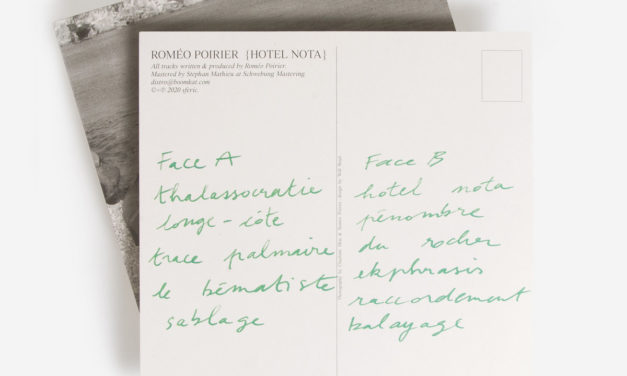 ROMÉO POIRIER {HOTEL NOTA}
All tracks written & produced by Roméo Poirier.
Mastered by Stephan Mathieu at Schwebung Mastering.
distro@boomkat.com
℗+© 2020 sferic.
Face A
thalassocratie
longe-côte
trace palmaire
le bématiste
sablage
Face B
hotel nota
pénombre
du rocher
ekphrasis
raccordement
balayage